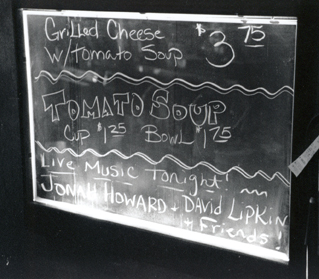 Grilled Cheese $3.75
w/tomato Soup
TOMATO SOUP
Cup $1.25 Bowl $1.75
Live Music Tonight!
JONAH HOWARD + DAVID LIPKIN
+ Friends!